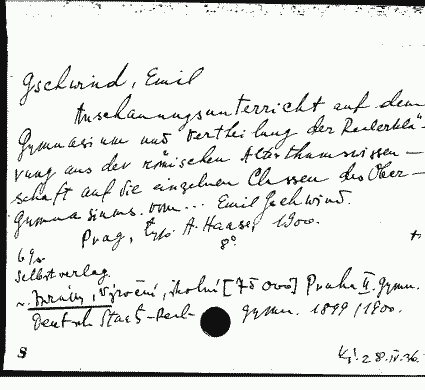 Gschwind, Emil
Anschauungsunterricht auf dem
Gymnasium und Vertheilung der Realerklä-
rung aus der römischen Alterthumswissen-
schaft auf die einzelnen Classen des Ober-
gymnasiums. Von... Emil Gschwind.
Prag, Typ. A. Haase, 1900.
8°.
Selbstverlag.
výroční, školní [75 000] Praha II. Gymn.
Deutsch. Staats- gymn. 1899/1900.
28.IV.36.